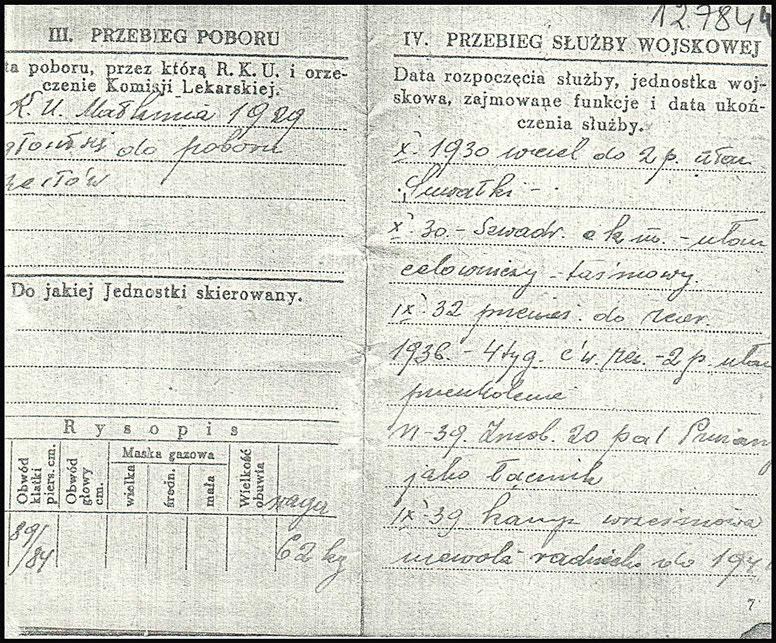 127844
III. PRZEBIEG POBORU
ta poboru, przez którą R. K. U. i orze-
czenie Komisji Lekarskiej.
K. U. 1929
do poboru
Do jakiej Jednostki skierowany.
Rysopis
Obwód klatki piers. cm.
Obwód głowy cm.
Maska gazowa
wielka
średn.
mała
Wielkość obuwia
waga
89/
/84
62 kg
IV. PRZEBIEG SŁUŻBY WOJSKOWEJ
Data rozpoczęcia służby, jednostka woj-
skowa, zajmowane funkcje i data ukoń-
czenia służby.
X. 1930 wciel do 2 p. ułan
Suwałki -
X. 30. - Szwadr. c k m. - ułan
celowniczy - taśmowy.
IX. 32 przenies. do rezer.
1936. - 4 tyg. ćw. rez. - 2 p. ułan
przeszkolenie
39. Zmob. 20 pal
jako łącznik
IX 39 kamp wrześniowa
niewola radziecka do
7